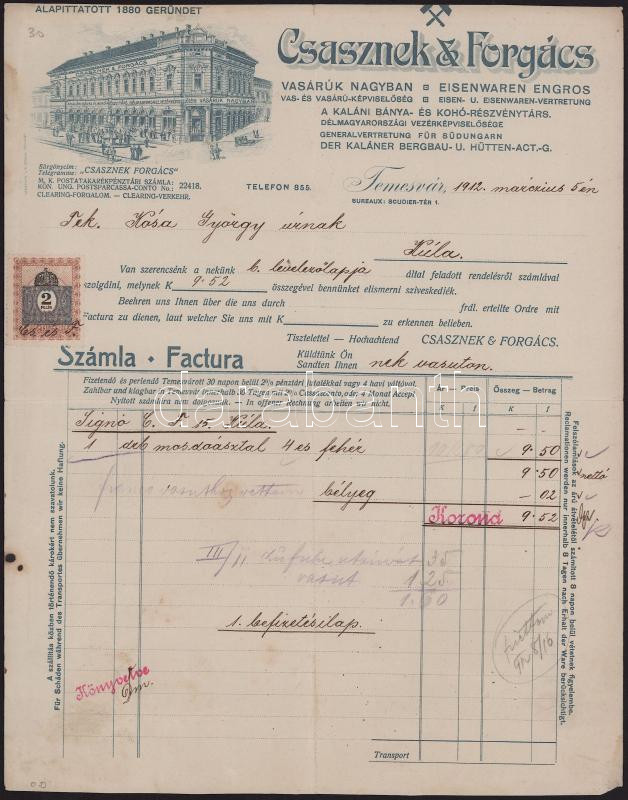 30
ALAPITTATOTT 1880 GERÜNDET
Csasznek & Forgács
CSASZNEK & FORGÁCS
VASÁRÚK NAGYBAN EISENWAREN ENGROS
VAS- ÉS VASÁRÚ-KÉPVISELŐSÉG EISEN- U. EISENWAREN-VERTRETUNG
A KALÁNI BÁNYA- ÉS KOHÓ-RÉSZVÉNYTÁRS.
DÉLMAGYARORSZÁGI VEZÉRKÉPVISELŐSÉGE
GENERALVERTRETUNG FÜR SÜDUNGARN
DER KALÁNER BERGBAU- U. HÜTTEN-ACT.-G.
Sürgönycim:
Telegramme: „CSASZNEK FORGÁCS"
M. K. POSTATAKARÉKPÉNZTÁRI SZÁMLA:
KÖN. UNG. POSTSPARCASSA-CONTO No.: 22418.
CLEARING-FORGALOM. — CLEARING-VERKEHR.
TELEFON 855.
Temesvár, 1912. márczius 5 én
BUREAUX: SCUDIER-TÉR 1.
Tek. Kósa György úrnak
Kúla.
Van szerencsénk a nekünk b. levelezőlapja által feladott rendelésről számlával
szolgálni, melynek K 9·52 összegével bennünket elismerni szíveskedjék.
Beehren uns Ihnen über die uns durch frdl. erteilte Ordre mit
Factura zu dienen, laut welcher Sie uns mit K zu erkennen belieben.
2
Tisztelettel — Hochachtend CSASZNEK & FORGÁCS.
Számla · Factura
Küldtünk Ön
Sandten Ihnen nek vasuton.
Fizetendő és perlendő Temesvárott 30 napon belül 2% pénztári jutalékkal vagy 4 havi váltóval.
Zahlbar und klagbar in Temesvár innerhalb 30 Tagen mit 2% Cassasconto, oder 4 Monat Accept
Nyitott számlára nem dolgozunk. — In offener Rechnung arbeiten wir nicht.
Ár — Preis Összeg — Betrag
K f K f
Signó C. F. 15. Kúla.
1 drb mosdóasztal 4 es fehér 9·50
9·50 nettó
bélyeg —02
Korona 9·52
III/11
35
1.25
1.60
1. befizetésilap.
Könyvelve
A szállítás közben történendő károkért nem szavatolunk.
Für Schäden während des Transportes übernehmen wir keine Haftung.
Felszólamlások az árú átvételétől számított 8 napon belül vétetnek figyelembe.
Reclamationen werden nur innerhalb 8 Tagen nach Erhalt der Ware berücksichtigt.
Transport
darabanth